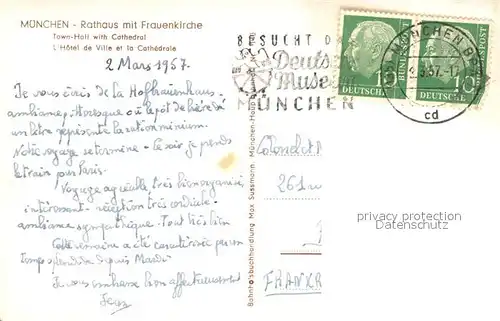 MÜNCHEN - Rathaus mit Frauenkirche
Town-Hall with Cathedral
L'Hôtel de Ville et la Cathédrale
2 Mars 1957.
Je vous écris de la Hofbräuhaus
ambiance pittoresque où le pot de bière d'
un litre représente la ration minimum.
Notre voyage se termine - Ce soir je prends
le train pour Paris.
Voyage agréable, très bien organisé,
intéressant - réception très cordiale -
ambiance sympathique. Tout très bien
Cette semaine a été caractérisée par un
temps splendide depuis Mardi
Je vous embrasse bien affectueusement
Bahnhofsbuchhandlung Max Sussmann, München-Hau
BESUCHT DA
Deutsc
Muse
MÜNCHEN
MÜNCHEN B
.3.57.-1
cd
10
BUNDESPOST
DEUTSCHE
10
DEUTSCHE
261
FRANKR
privacy protection
Datenschutz